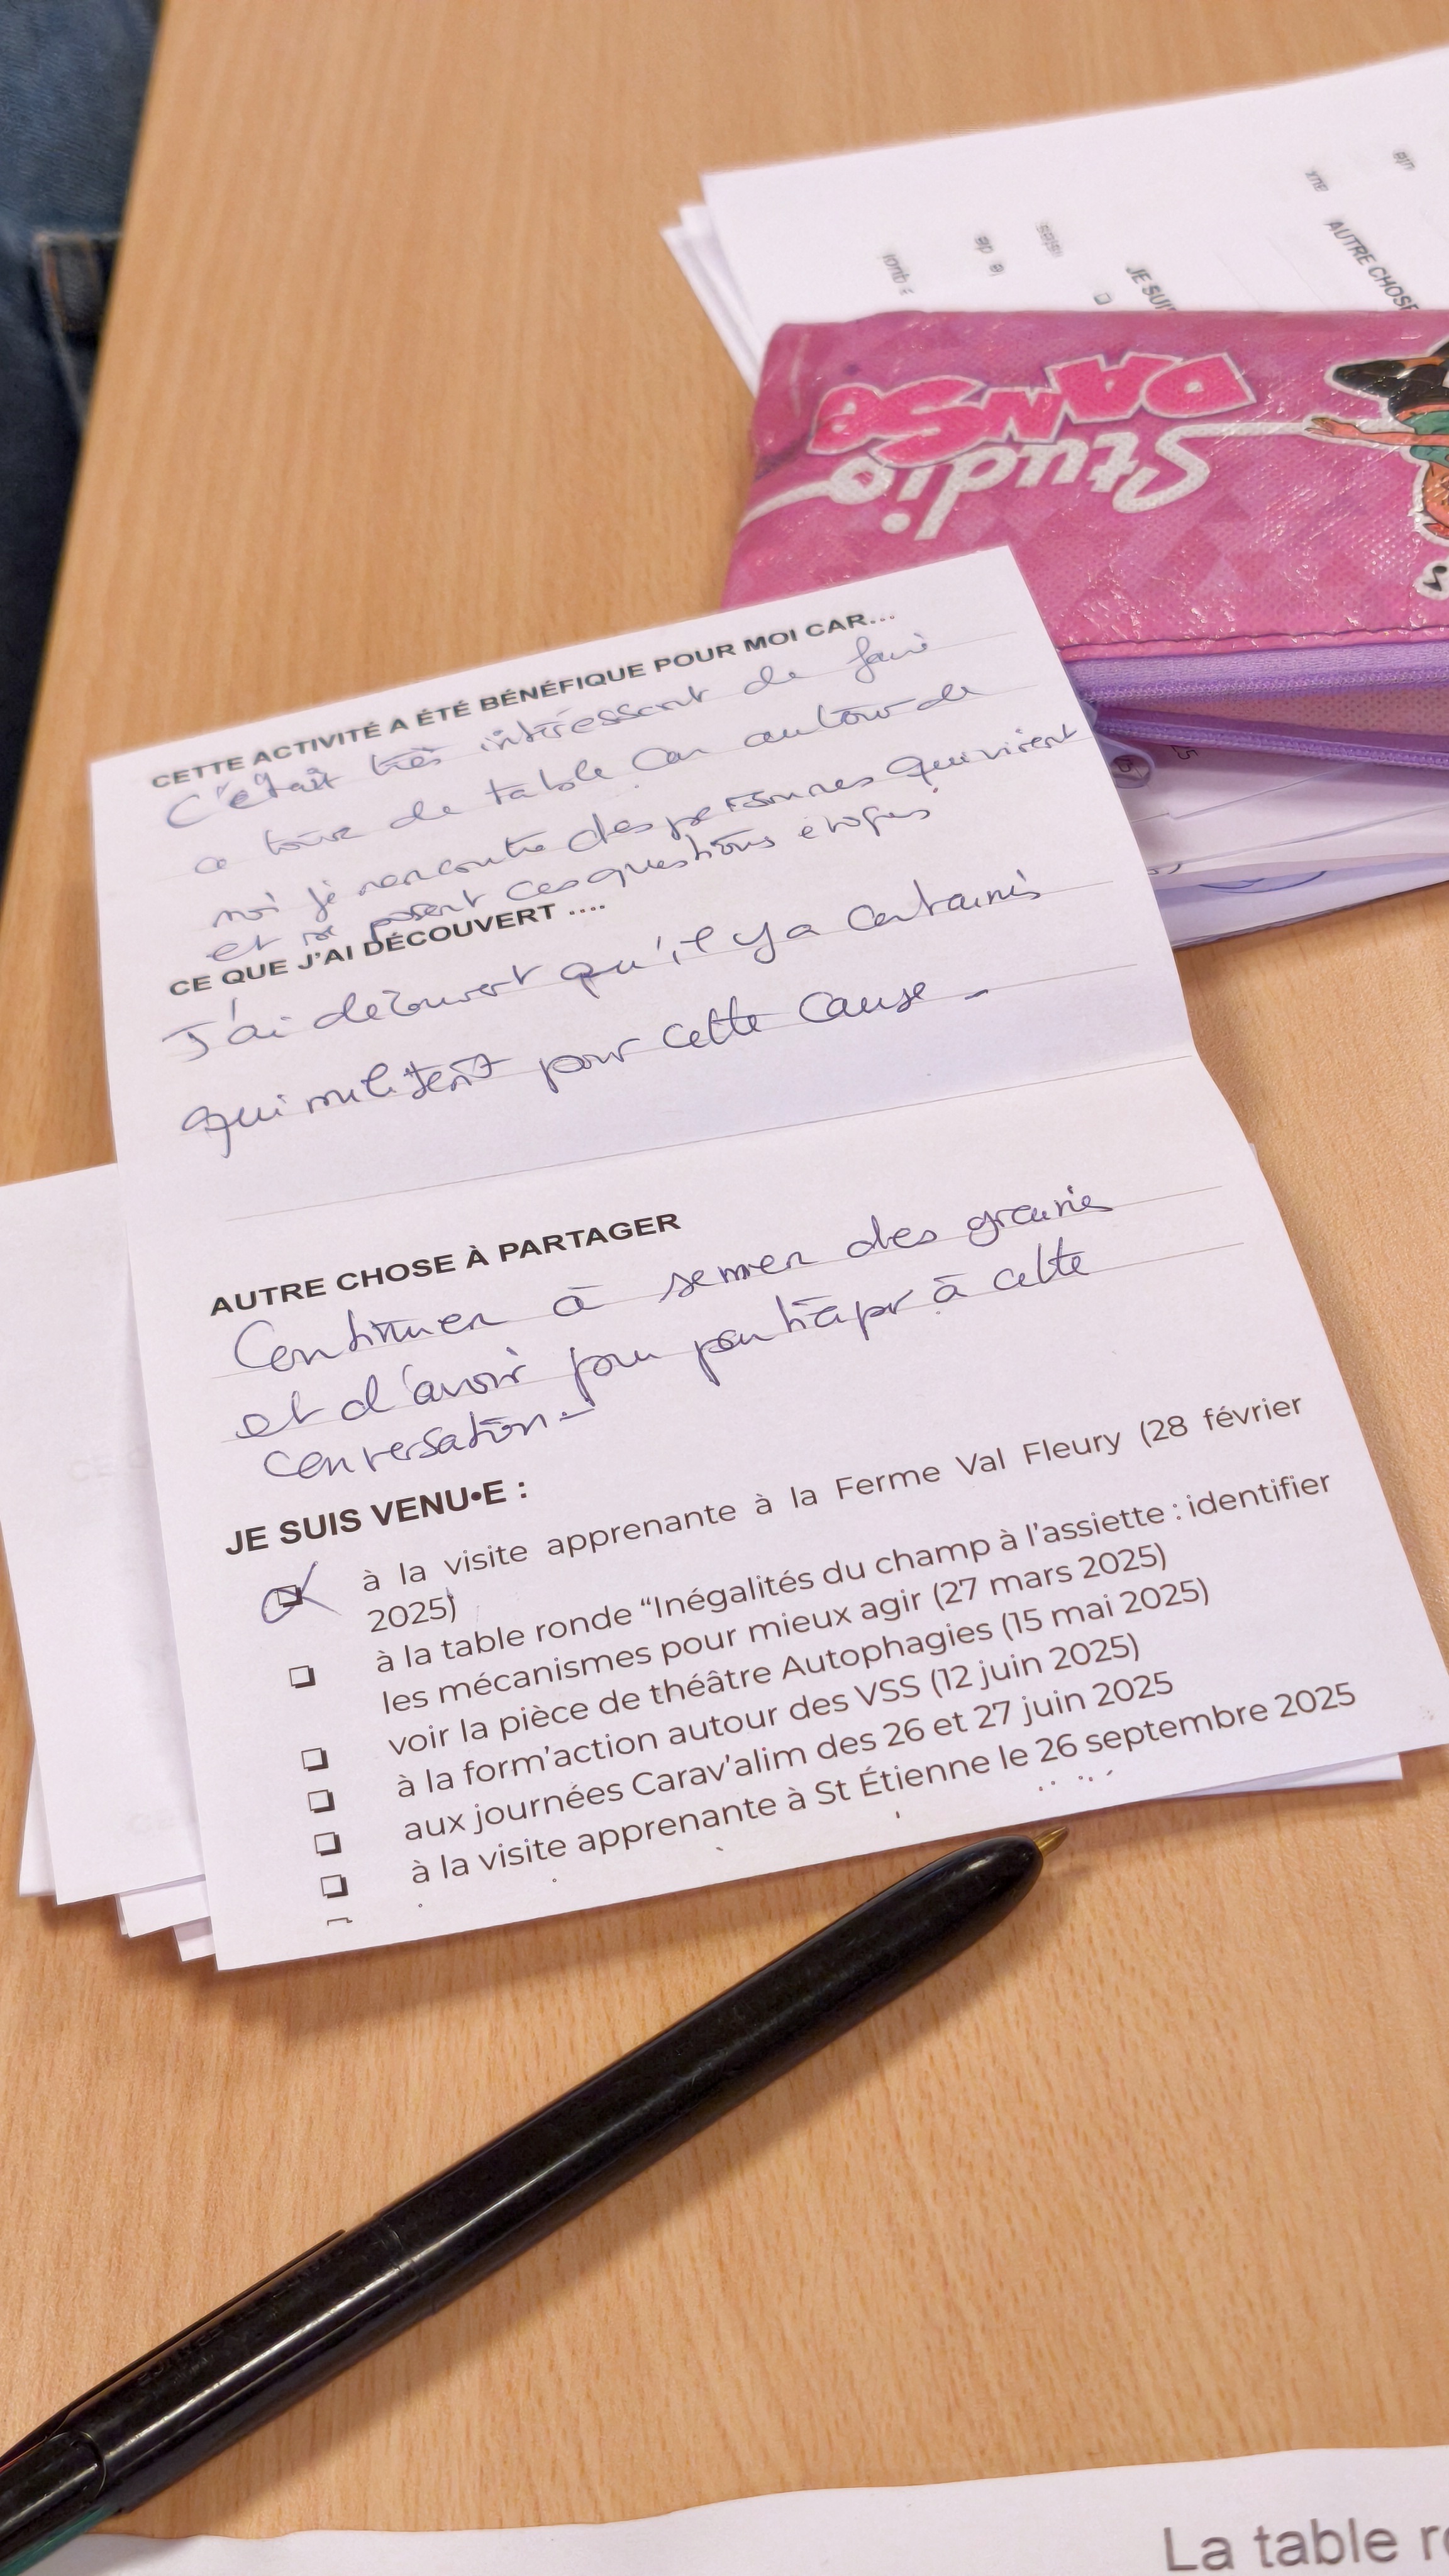 AUTRE CHOSE
JE SUI
Studio
DANSE
CETTE ACTIVITÉ A ÉTÉ BÉNÉFIQUE POUR MOI CAR...
C'était très intéressant de faire
ce tour de table car autour de
moi je rencontre des personnes qui vivent
et se posent ces questions
CE QUE J'AI DÉCOUVERT ....
J'ai découvert qu'il y a certaines
qui militent pour cette cause -
AUTRE CHOSE À PARTAGER
Continuer à semer des graines
et d'avoir pour à cette
conversation -
JE SUIS VENU•E :
❑ à la visite apprenante à la Ferme Val Fleury (28 février
2025)
❑ à la table ronde “Inégalités du champ à l’assiette : identifier
les mécanismes pour mieux agir (27 mars 2025)
❑ voir la pièce de théâtre Autophagies (15 mai 2025)
❑ à la form’action autour des VSS (12 juin 2025)
❑ aux journées Carav’alim des 26 et 27 juin 2025
❑ à la visite apprenante à St Étienne le 26 septembre 2025
La table